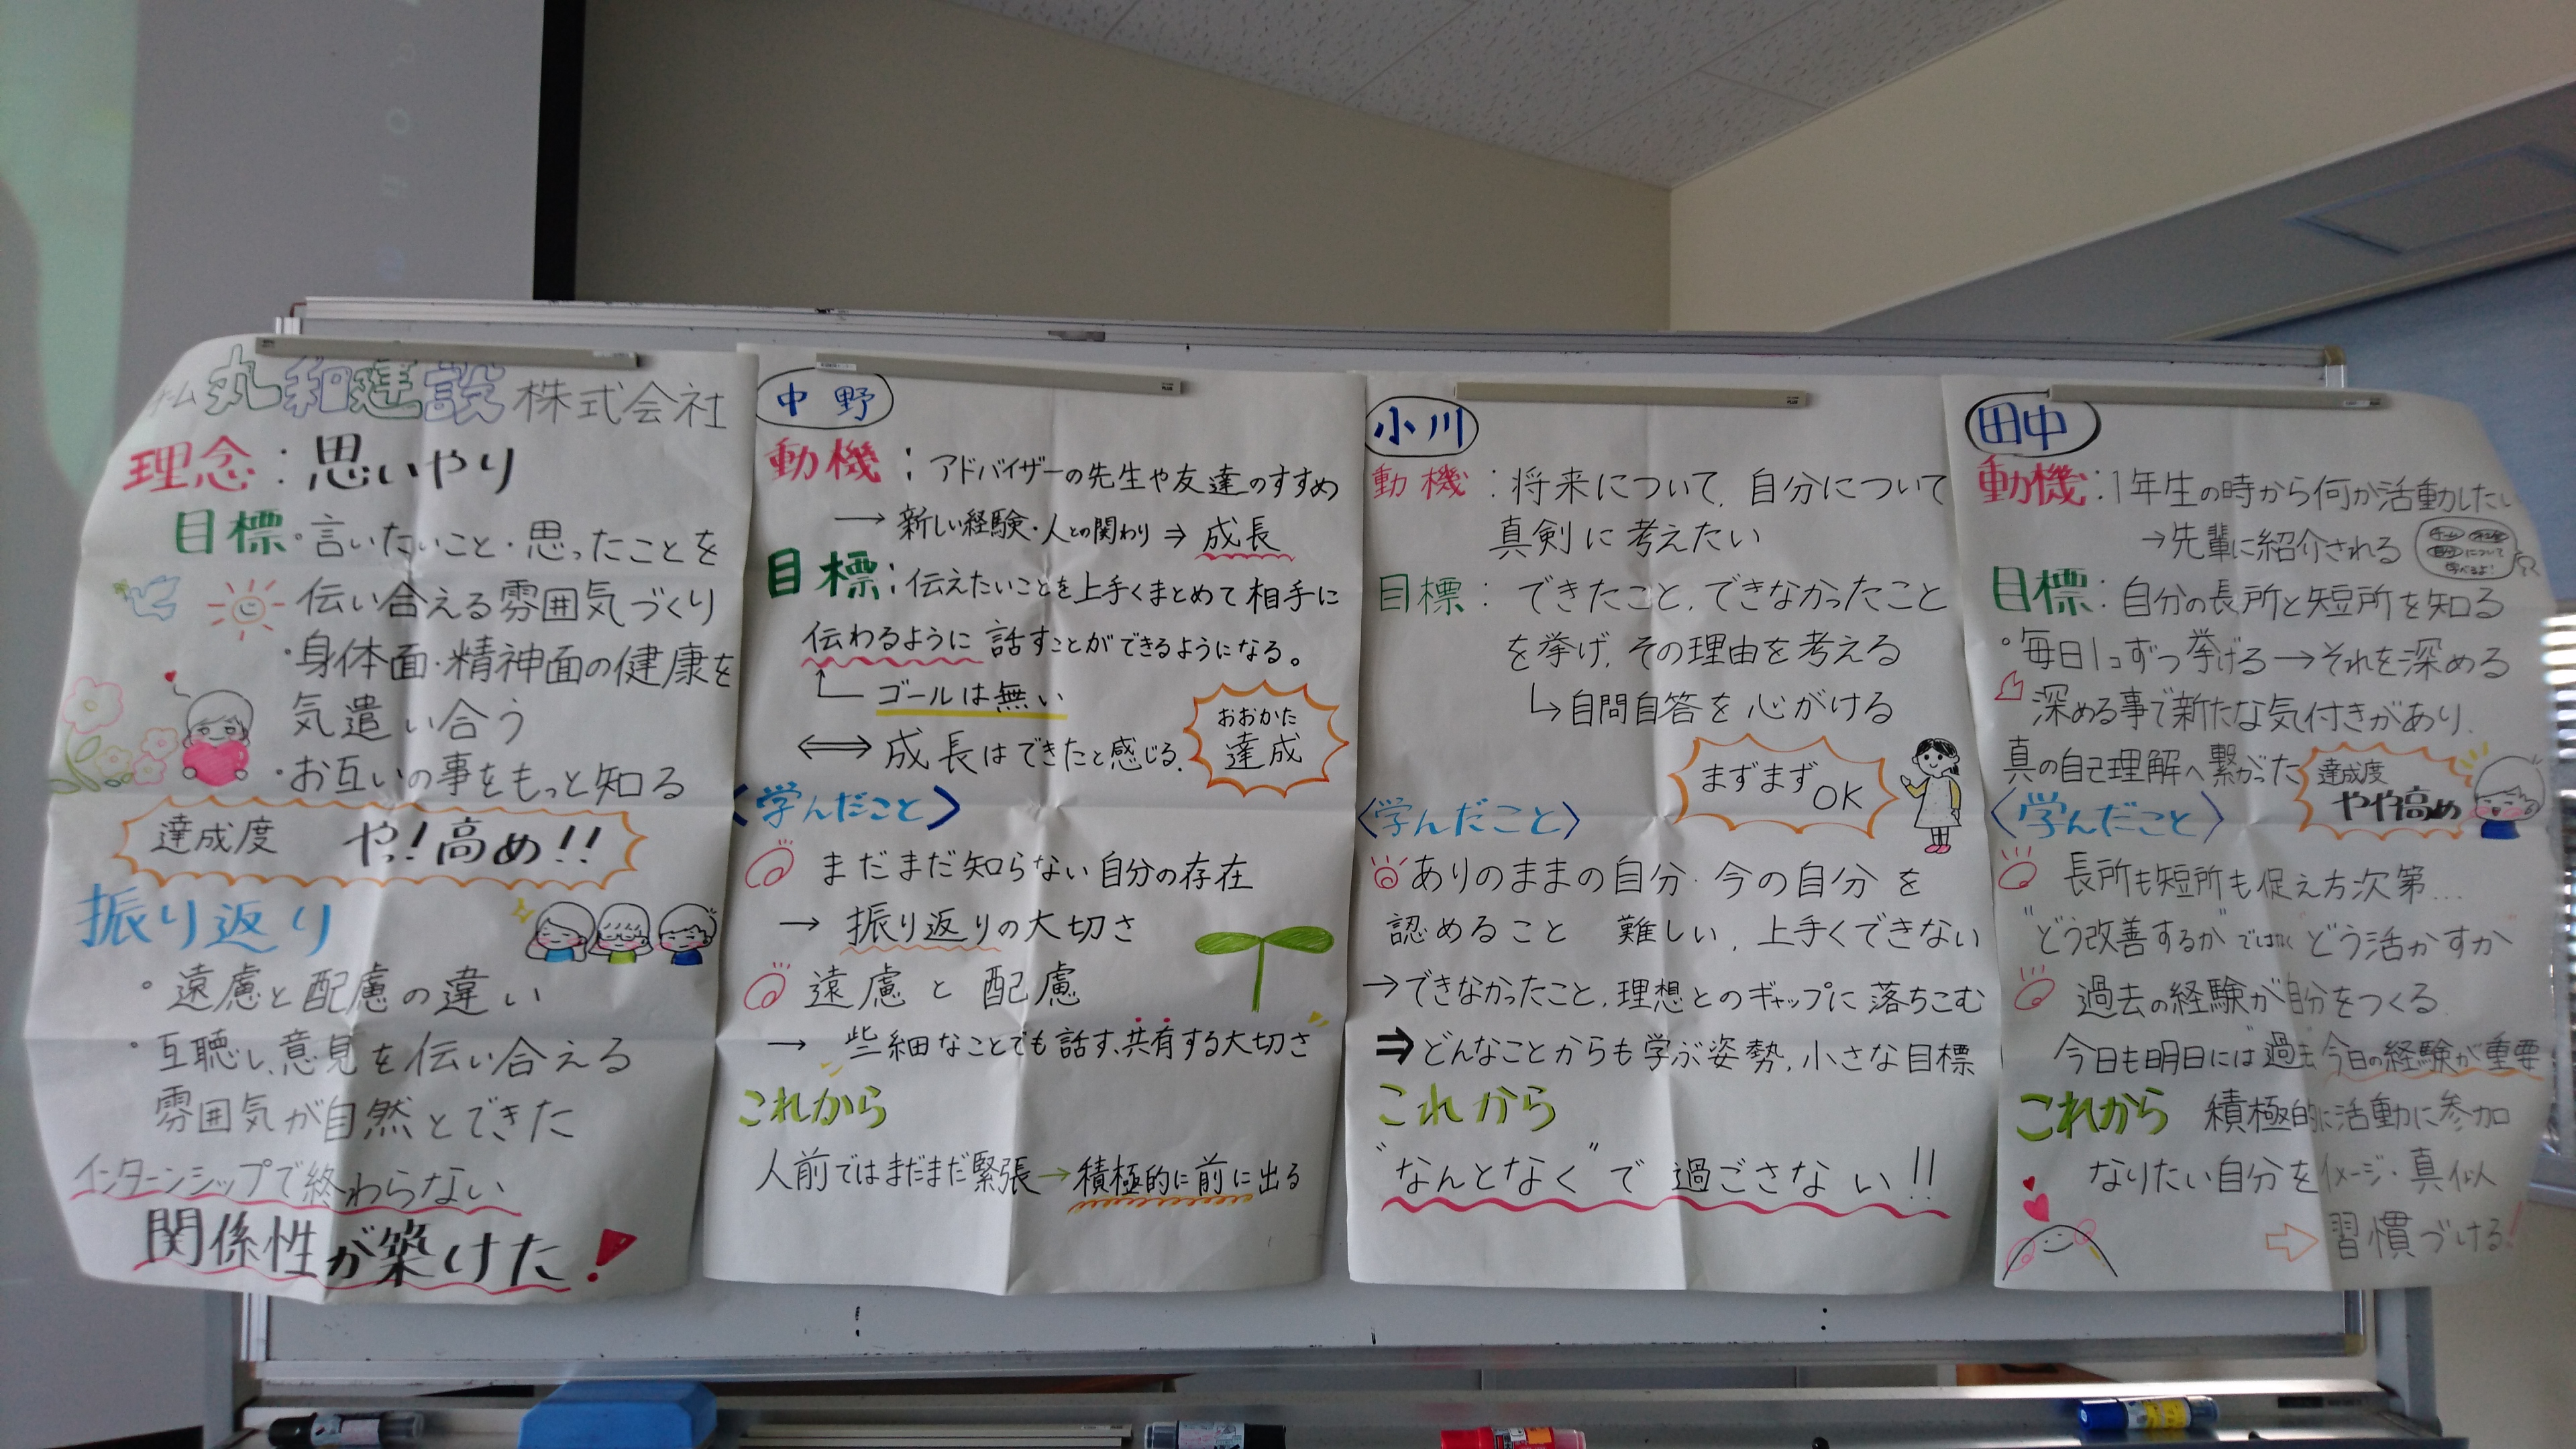 チーム 丸和建設 株式会社
理念:思いやり
目標・言いたいこと・思ったことを
伝い合える雰囲気づくり
・身体面・精神面の健康を
気遣い合う
・お互いの事をもっと知る
達成度 やっ!高め!!
振り返り
・遠慮と配慮の違い
・互聴し、意見を伝い合える
雰囲気が自然とできた
インターンシップで終わらない
関係性が築けた!
中野
動機:アドバイザーの先生や友達のすすめ
→新しい経験・人との関わり⇒成長
目標:伝えたいことを上手くまとめて相手に
伝わるように話すことができるようになる。
ゴールは無い
⇔成長はできたと感じる.
おおかた
達成
〈学んだこと〉
まだまだ知らない自分の存在
→振り返りの大切さ
遠慮と配慮
→些細なことでも話す、共有する大切さ
これから
人前ではまだまだ緊張→積極的に前に出る
小川
動機:将来について,自分について
真剣に考えたい
目標:できたこと,できなかったこと
を挙げ,その理由を考える
↳自問自答を心がける
まずまず
OK
〈学んだこと〉
ありのままの自分・今の自分を
認めること 難しい,上手くできない
→できなかったこと,理想とのギャップに落ちこむ
⇒どんなことからも学ぶ姿勢,小さな目標
これから
"なんとなく"で過ごさない!!
田中
動機:1年生の時から何か活動したい
→先輩に紹介される
について
学べるよ!
目標:自分の長所と短所を知る
・毎日1コずつ挙げる→それを深める
深める事で新たな気付きがあり,
真の自己理解へ繋がった
達成度
やや高め
〈学んだこと〉
長所も短所も促え方次第...
"どう改善するか"ではなく"どう活かすか"
過去の経験が自分をつくる
今日も明日には"過去"今日の経験が重要
これから 積極的に活動に参加
なりたい自分をイメージ・真似
⇨習慣づける!